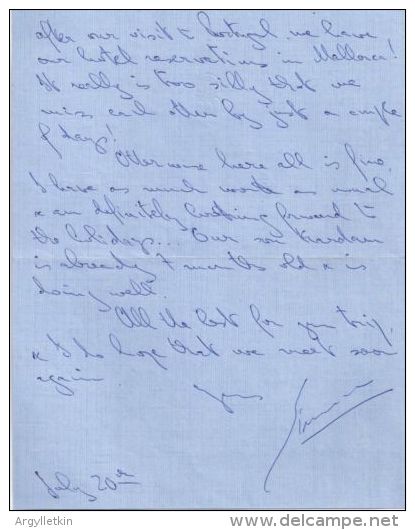 after our visit to Portugal we have
our hotel reservations in Mallorca!
It really is too silly that we
miss each other by just a couple
of days!
Otherwise here all is fine,
I have as much work as usual
& am definitely looking forward to
the holidays... Our son Kardam
is already 7 months old & is
doing well.
All the best for your trip,
& I do hope that we meet soon
again
Yours
July 20th
Argylletkin
www.delcampe.net